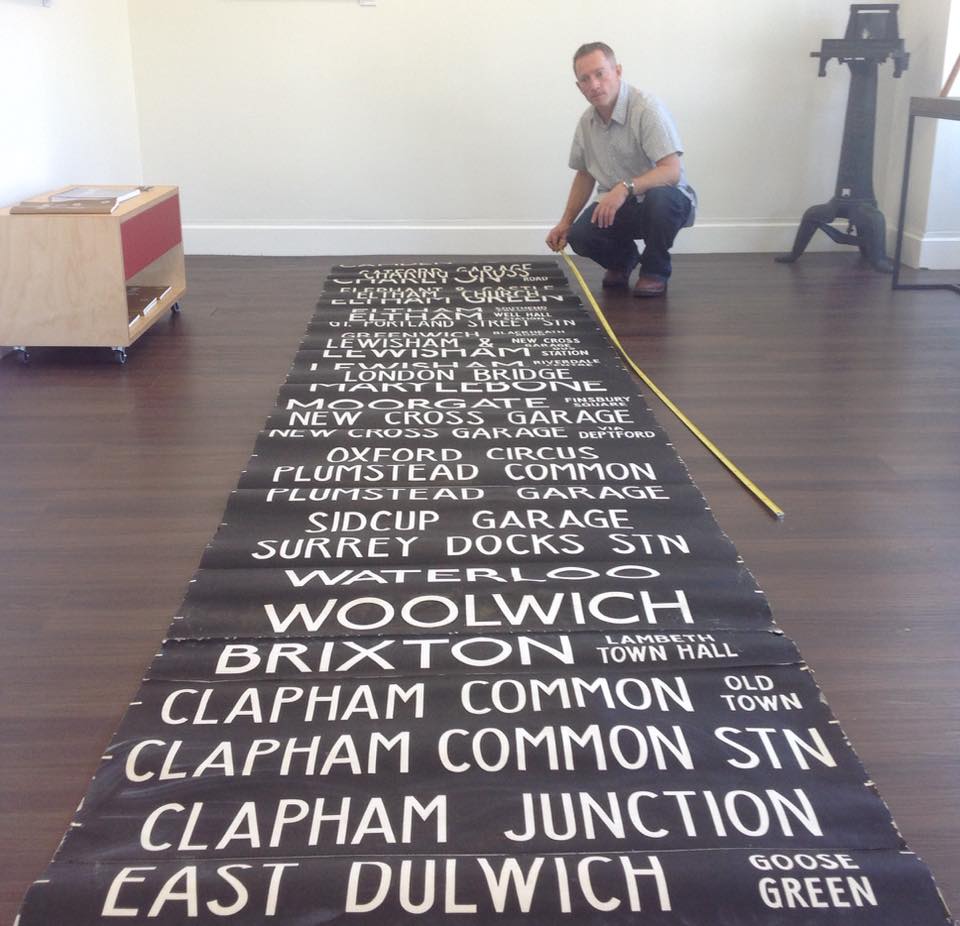 CAMDEN
CATERING GARAGE
CHARING CROSS ROAD
ELEPHANT & CASTLE
ELTHAM CHURCH
ELTHAM GREEN
ELTHAM SOUTHEND
ELTHAM WELL HALL STATION
GT. PORTLAND STREET STN
GREENWICH BLACKHEATH
LEWISHAM & NEW CROSS GARAGE
LEWISHAM STATION
LEWISHAM RIVERDALE CENTRE
LONDON BRIDGE
MARYLEBONE
MOORGATE FINSBURY SQUARE
NEW CROSS GARAGE
NEW CROSS GARAGE VIA DEPTFORD
OXFORD CIRCUS
PLUMSTEAD COMMON
PLUMSTEAD GARAGE
SIDCUP GARAGE
SURREY DOCKS STN
WATERLOO
WOOLWICH
BRIXTON LAMBETH TOWN HALL
CLAPHAM COMMON OLD TOWN
CLAPHAM COMMON STN
CLAPHAM JUNCTION
EAST DULWICH GOOSE GREEN